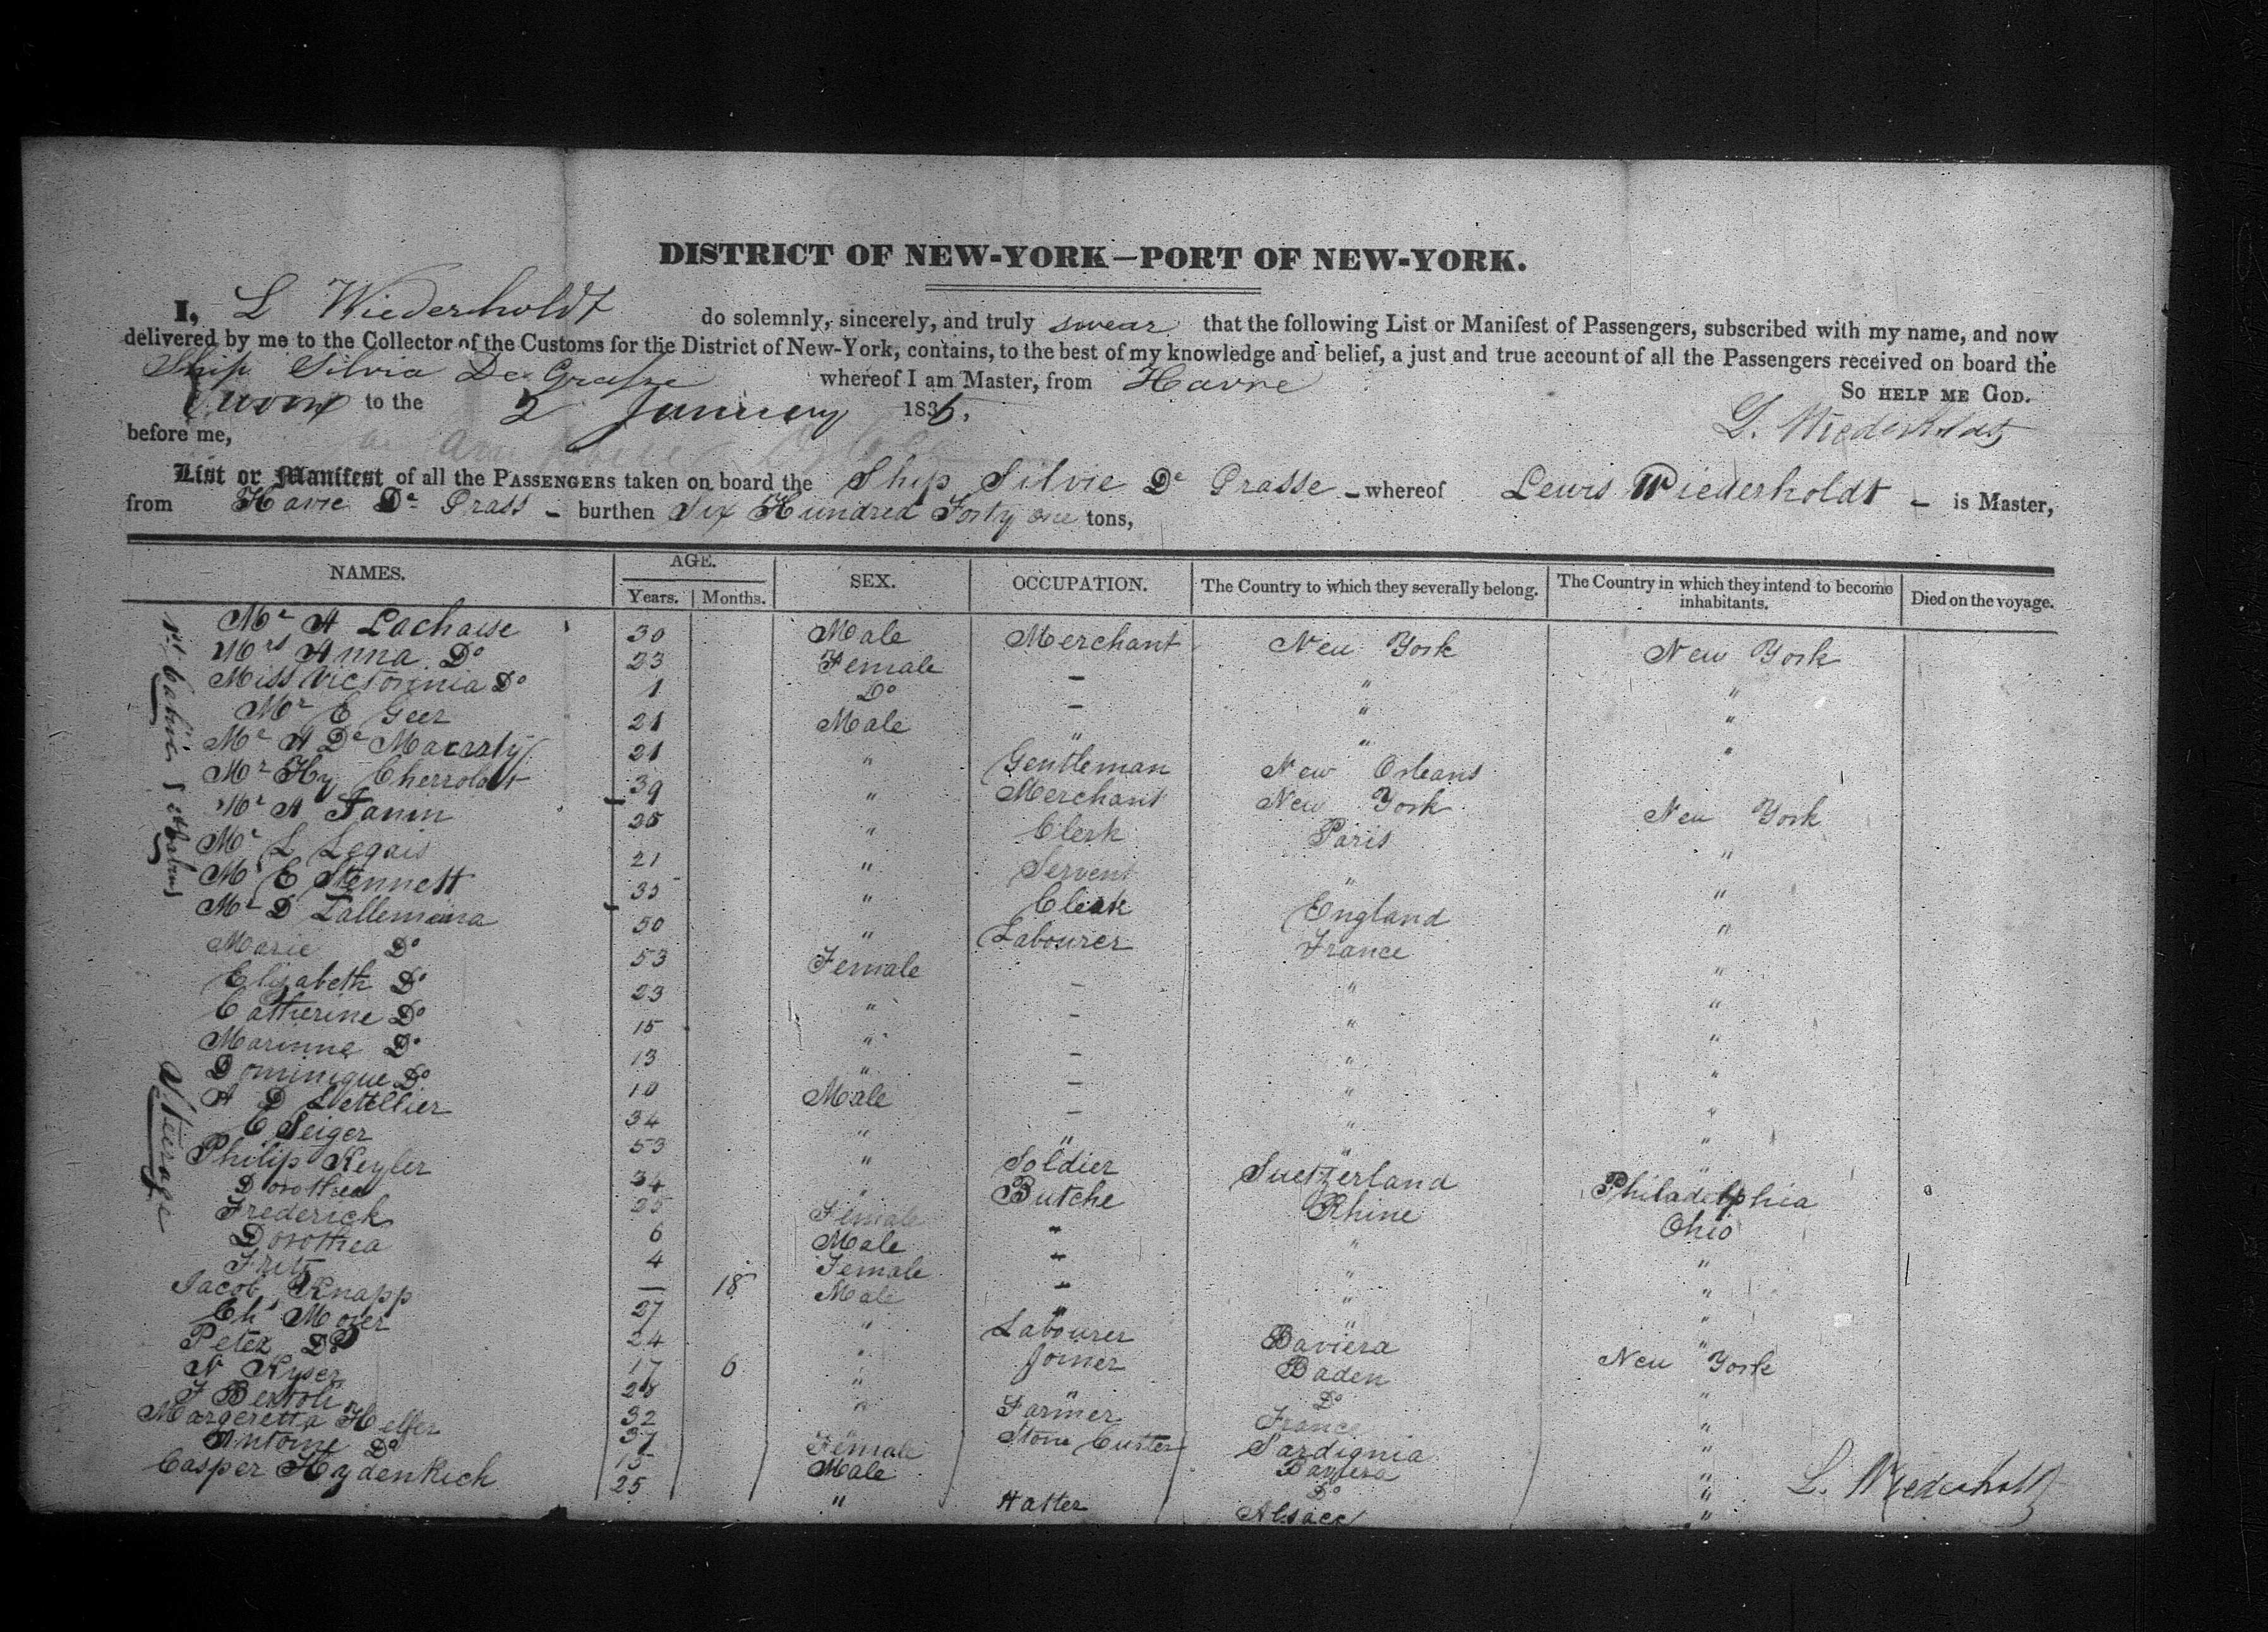 DISTRICT OF NEW-YORK—PORT OF NEW-YORK.
I, L Wiederholdt do solemnly, sincerely, and truly swear that the following List or Manifest of Passengers, subscribed with my name, and now
delivered by me to the Collector of the Customs for the District of New-York, contains, to the best of my knowledge and belief, a just and true account of all the Passengers received on board the
Ship Silvia De Grasse whereof I am Master, from Havre
So HELP ME GOD.
Sworn to the 2 January 1835.
L. Wiederholdt
before me,
List or Manifest of all the PASSENGERS taken on board the Ship Silvie De Grasse - whereof Lewis Wiederholdt - is Master,
from Havre De Grass - burthen Six Hundred Forty one tons,
NAMES. AGE. SEX. OCCUPATION. The Country to which they severally belong. The Country in which they intend to become inhabitants. Died on the voyage.
Years. Months.
1st Cabin & 2d Cabin
Mr A Lachaise 30 Male Merchant New York New York
Mrs Anna Do 23 Female - " "
Miss Do 1 Do - " "
Mr E Geer 21 Male " " "
Mr A De 21 " Gentleman New Orleans
Mr Hy 39 " Merchant New York New York
Mr A Fanin 25 " Clerk Paris "
Mr L Legais 21 " Servent " "
Mr E Stennett 35 " Clerk England "
Steerage
Mr D 50 " Labourer France "
Marie Do 53 Female - " "
Elizabeth Do 23 " - " "
Catherine Do 15 " - " "
Marinne Do 13 " - " "
Dominique Do 10 Male - " "
A D Letellier 34 " " " "
C Seiger 53 " Soldier Suetzerland Philadelphia
Philip Keyler 34 " Butche Rhine Ohio
Dorothea 25 Female " " "
Frederick 6 Male " " "
Dorothea 4 Female " " "
Fritz — 18 Male " " "
Jacob Knapp 27 " Labourer Baviera "
Chs Moyer 24 " Joiner Baden New York
Peter Do 17 6 " " Do "
N Kyser 28 " Farmer France "
J Bertoli 32 " Stone Cutter Sardignia "
Margeretta Helfer 37 Female Baviera "
Antoine Do 15 Male Do "
Casper Hydenrich 25 " Hatter Alsace "
L. Wiederholdt